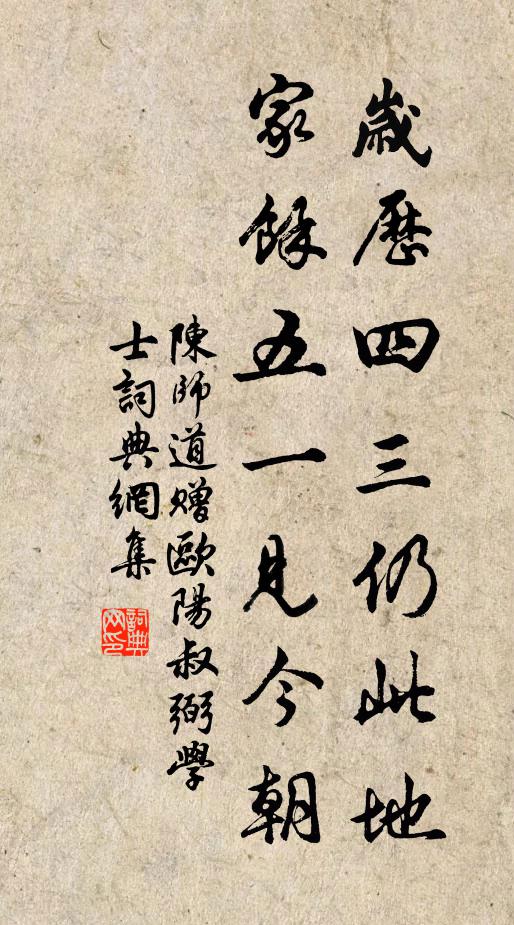 歲歷四三仍此地
家餘五一見今朝
陳師道贈歐陽叔弼學
士詞典網集
詞典
网印